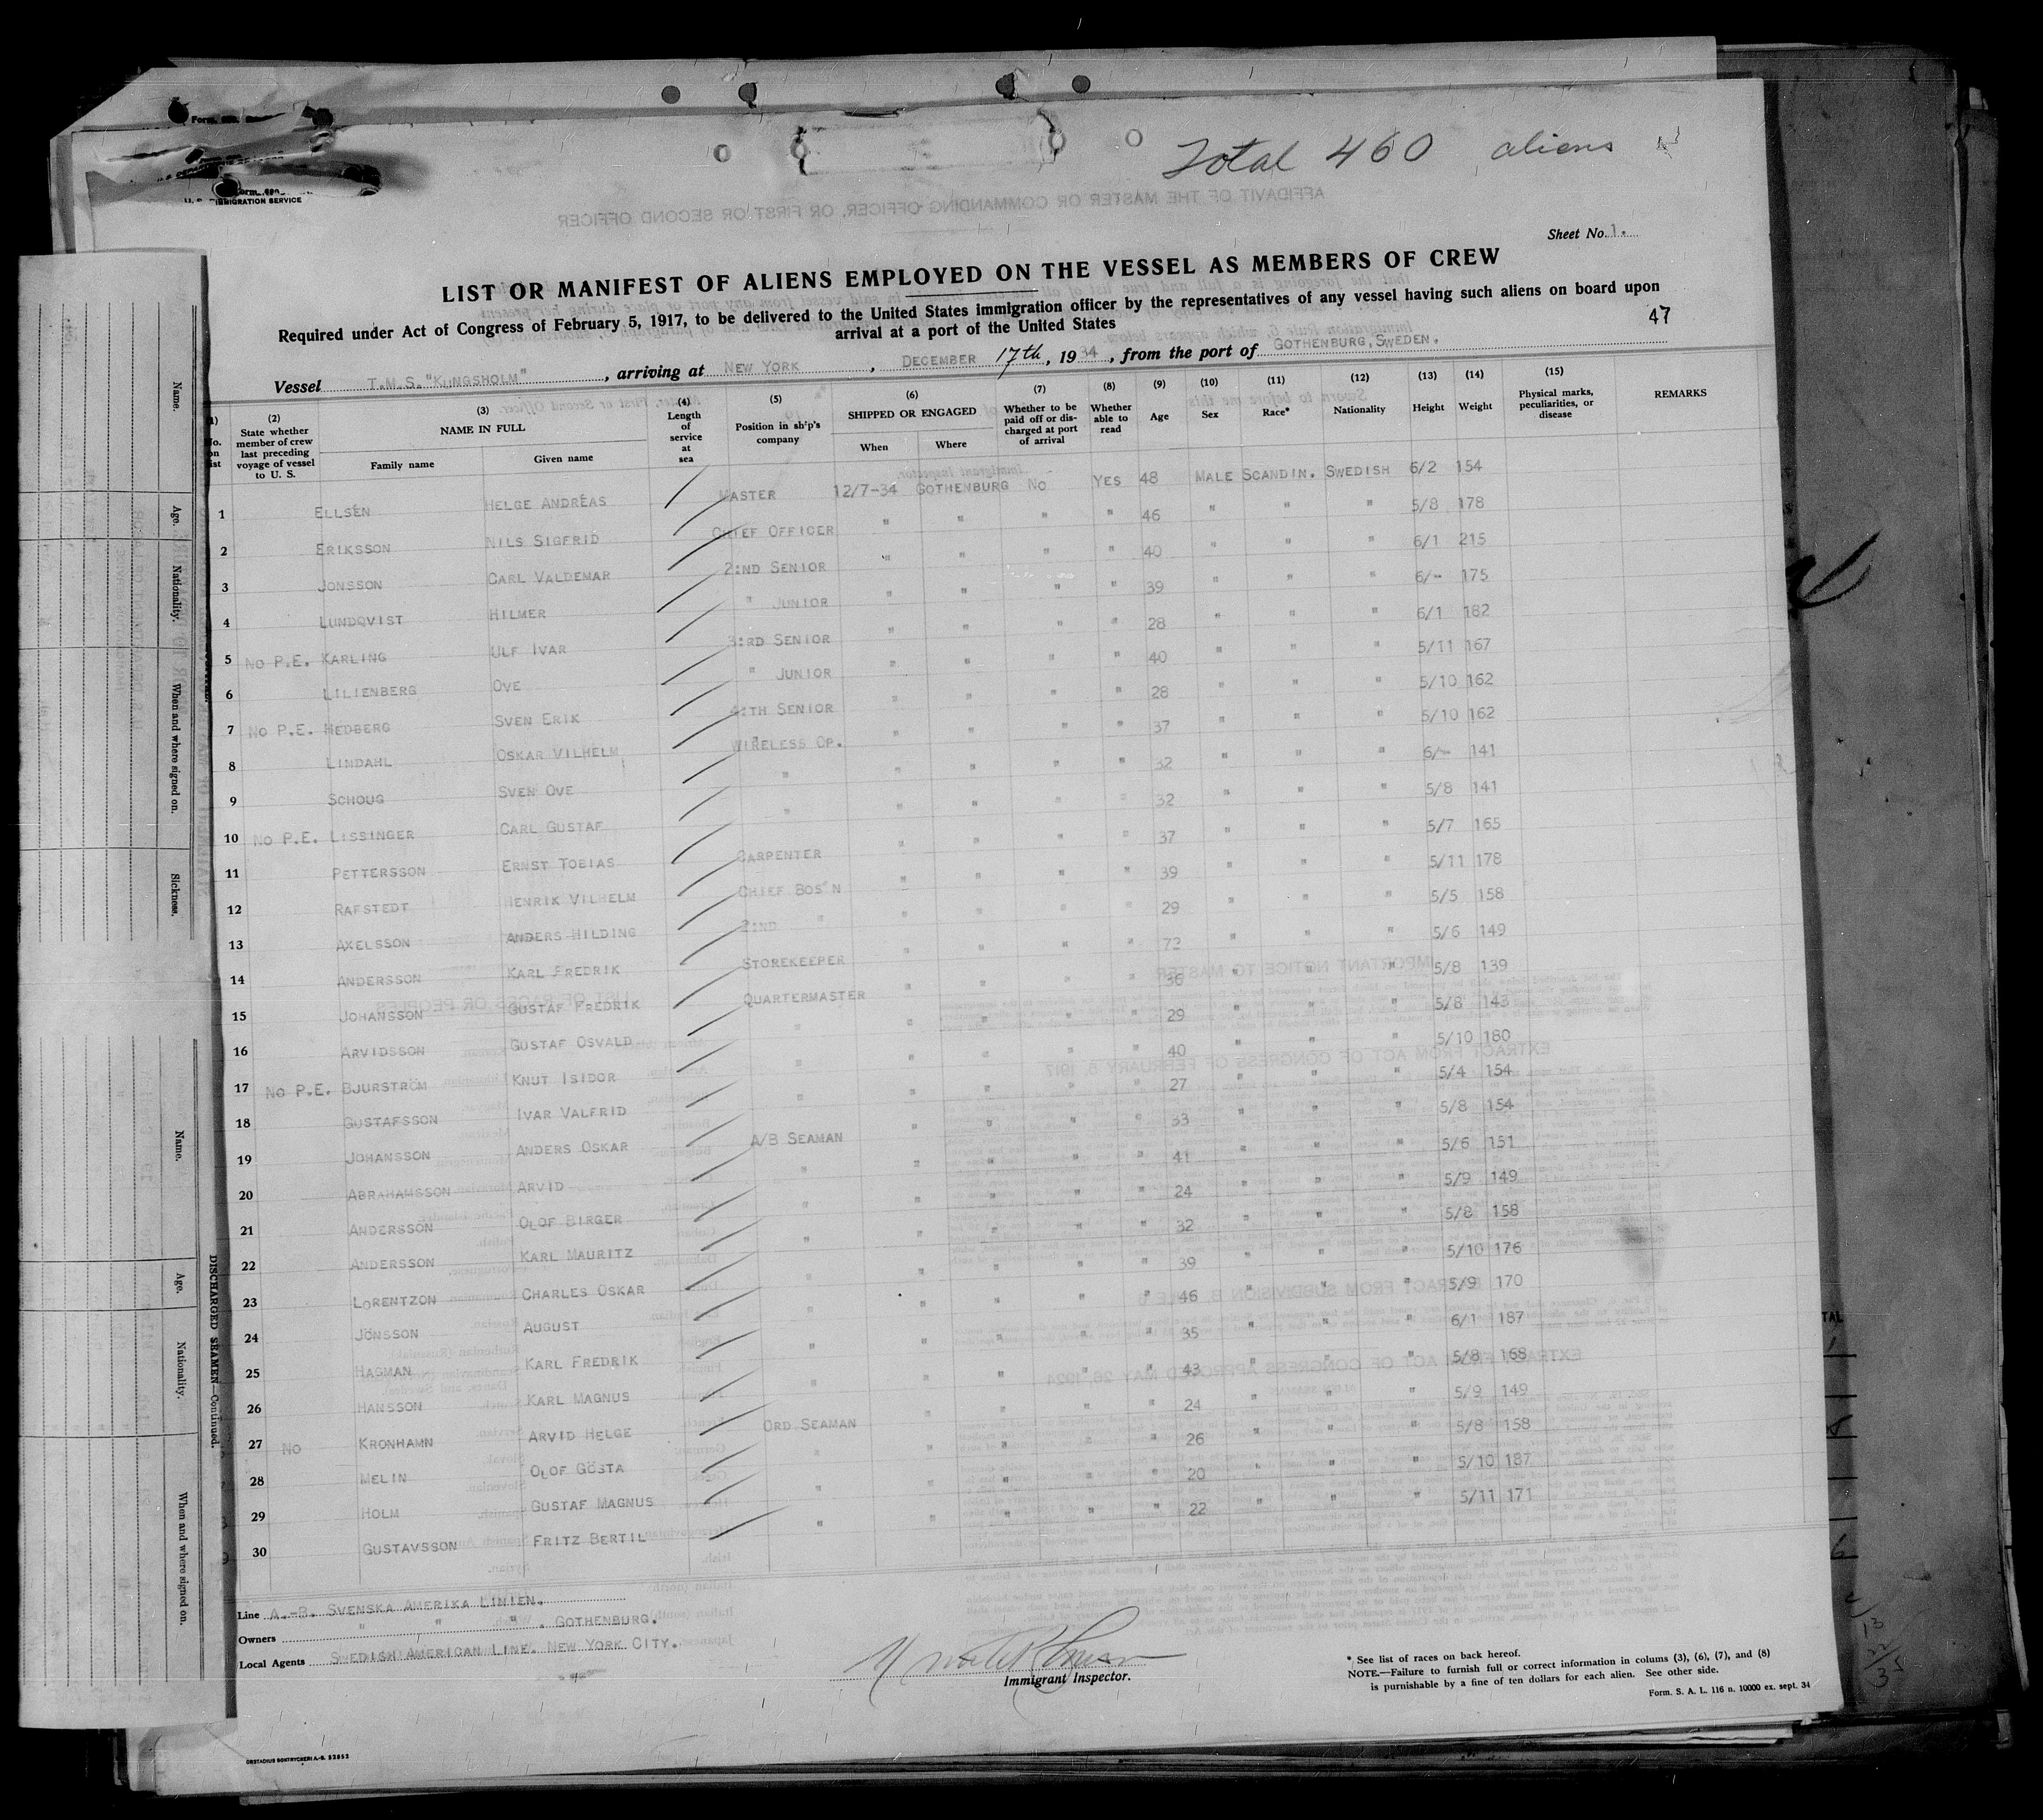 Total 460 aliens
IMMIGRATION SERVICE
Sheet No. 1.
LIST OR MANIFEST OF ALIENS EMPLOYED ON THE VESSEL AS MEMBERS OF CREW
Required under Act of Congress of February 5, 1917, to be delivered to the United States immigration officer by the representatives of any vessel having such aliens on board upon
arrival at a port of the United States
47
Vessel T.M.S."KUNGSHOLM", arriving at NEW YORK, DECEMBER 17th, 1934, from the port of GOTHENBURG, SWEDEN.
(2) State whether member of crew last preceding voyage of vessel to U. S. (3) NAME IN FULL Family name Given name (4) Length of service at sea (5) Position in ship's company (6) SHIPPED OR ENGAGED When Where (7) Whether to be paid off or discharged at port of arrival (8) Whether able to read (9) Age (10) Sex (11) Race* (12) Nationality (13) Height (14) Weight (15) Physical marks, peculiarities, or disease REMARKS
1 ELLSÉN HELGE ANDRÉAS MASTER 12/7-34 GOTHENBURG NO YES 48 MALE SCANDIN. SWEDISH 6/2 154
2 ERIKSSON NILS SIGFRID CHIEF OFFICER " " " " 46 " " " 5/8 178
3 JONSSON CARL VALDEMAR 2:ND SENIOR " " " " 40 " " " 6/1 215
4 LUNDQVIST HILMER " JUNIOR " " " " 39 " " " 6/- 175
5 NO P.E. KARLING ULF IVAR 3:RD SENIOR " " " " 28 " " " 6/1 182
6 LILIENBERG OVE " JUNIOR " " " " 40 " " " 5/11 167
7 NO P.E. HEDBERG SVEN ERIK 4:TH SENIOR " " " " 28 " " " 5/10 162
8 LINDAHL OSKAR VILHELM WIRELESS OP. " " " " 37 " " " 5/10 162
9 SCHOUG SVEN OVE " " " " " 32 " " " 6/- 141
10 NO P.E. LISSINGER CARL GUSTAF " " " " " 32 " " " 5/8 141
11 PETTERSSON ERNST TOBIAS CARPENTER " " " " 37 " " " 5/7 165
12 RAFSTEDT HENRIK VILHELM CHIEF BOS'N " " " " 39 " " " 5/11 178
13 AXELSSON ANDERS HILDING 2:ND " " " " " 29 " " " 5/5 158
14 ANDERSSON KARL FREDRIK STOREKEEPER " " " " 72 " " " 5/6 149
15 JOHANSSON GUSTAF FREDRIK QUARTERMASTER " " " " 36 " " " 5/8 139
16 ARVIDSSON GUSTAF OSVALD " " " " " 29 " " " 5/8 143
17 NO P.E. BJURSTRÖM KNUT ISIDOR " " " " " 40 " " " 5/10 180
18 GUSTAFSSON IVAR VALFRID " " " " " 27 " " " 5/4 154
19 JOHANSSON ANDERS OSKAR A/B SEAMAN " " " " 33 " " " 5/8 154
20 ABRAHAMSSON ARVID " " " " " 41 " " " 5/6 151
21 ANDERSSON OLOF BIRGER " " " " " 24 " " " 5/9 149
22 ANDERSSON KARL MAURITZ " " " " " 32 " " " 5/8 158
23 LORENTZON CHARLES OSKAR " " " " " 39 " " " 5/10 176
24 JÖNSSON AUGUST " " " " " 46 " " " 5/9 170
25 HAGMAN KARL FREDRIK " " " " " 35 " " " 6/1 187
26 HANSSON KARL MAGNUS " " " " " 43 " " " 5/8 168
27 NO KRONHAMN ARVID HELGE ORD SEAMAN " " " " 24 " " " 5/9 149
28 MELIN OLOF GÖSTA " " " " " 26 " " " 5/8 158
29 HOLM GUSTAF MAGNUS " " " " " 20 " " " 5/10 187
30 GUSTAVSSON FRITZ BERTIL " " " " " 22 " " " 5/11 171
Line A.-B. SVENSKA AMERIKA LINIEN.
Owners " " " . GOTHENBURG.
Local Agents SWEDISH AMERICAN LINE. NEW YORK CITY.
Immigrant Inspector.
* See list of races on back hereof.
NOTE.—Failure to furnish full or correct information in colums (3), (6), (7), and (8)
is punishable by a fine of ten dollars for each alien. See other side.
Form. S. A. L. 116 n. 10000 ex. sept. 34
Name.
Age.
Nationality.
When and where signed on.
Sickness.
Name.
Age.
Nationality.
When and where signed on.
DISCHARGED SEAMEN—Continued.